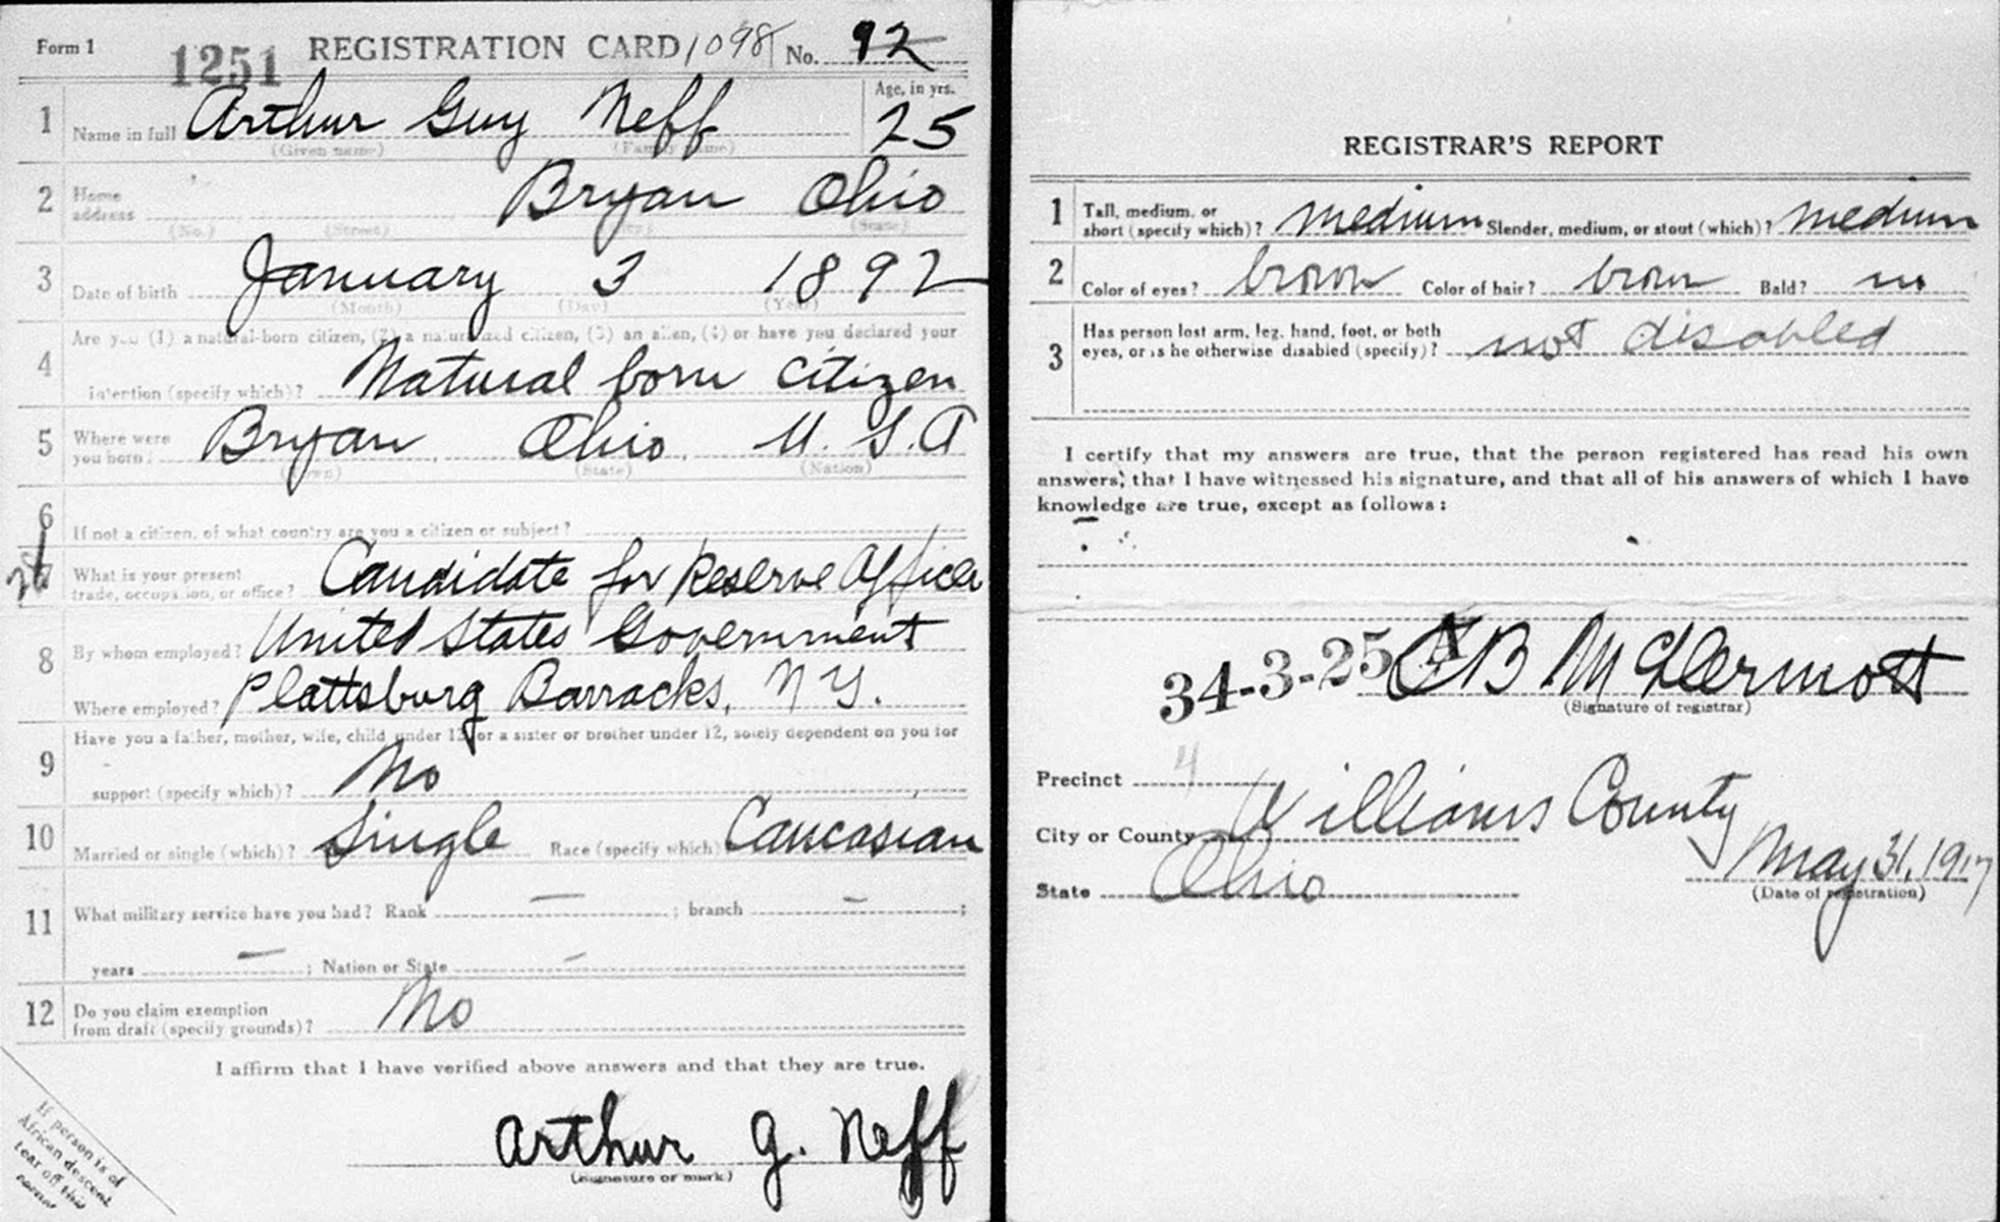 Form 1 1251 REGISTRATION CARD 1098 No. 92
1 Name in full Arthur Guy Neff Age, in yrs. 25
(Given name) (Family name)
2 Home address Bryan Ohio
(No.) (Street) (City) (State)
3 Date of birth January 3 1892
(Month) (Day) (Year)
4 Are you (1) a natural-born citizen, (2) a naturalized citizen, (3) an alien, (4) or have you declared your
intention (specify which)? Natural born citizen
5 Where were you born? Bryan, Ohio. U. S. A
(Town) (State) (Nation)
6 If not a citizen, of what country are you a citizen or subject?
7 What is your present
trade, occupation, or office? Candidate for Reserve Officer
8 By whom employed? United States Government
Where employed? Plattsburg Barracks, N Y.
9 Have you a father, mother, wife, child under 12, or a sister or brother under 12, solely dependent on you for
support (specify which)? No
10 Married or single (which)? Single Race (specify which) Caucasian
11 What military service have you had? Rank — ; branch — ;
years — ; Nation or State —
12 Do you claim exemption
from draft (specify grounds)? No
I affirm that I have verified above answers and that they are true.
Arthur G. Neff
(Signature or mark)
If person is of
African descent
tear off this
corner
REGISTRAR'S REPORT
1 Tall, medium, or
short (specify which)? Medium Slender, medium, or stout (which)? Medium
2 Color of eyes? brown Color of hair? brown Bald? no
3 Has person lost arm, leg, hand, foot, or both
eyes, or is he otherwise disabled (specify)? not disabled
I certify that my answers are true, that the person registered has read his own
answers, that I have witnessed his signature, and that all of his answers of which I have
knowledge are true, except as follows:
34-3-25 A CB McDermott
(Signature of registrar)
Precinct 4
City or County Williams County
State Ohio May 31, 1917
(Date of registration)